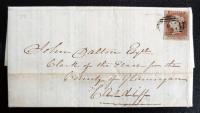 John Dalton Esqre
Clerk of the Peace for the
County of Glamorgan
Cardiff